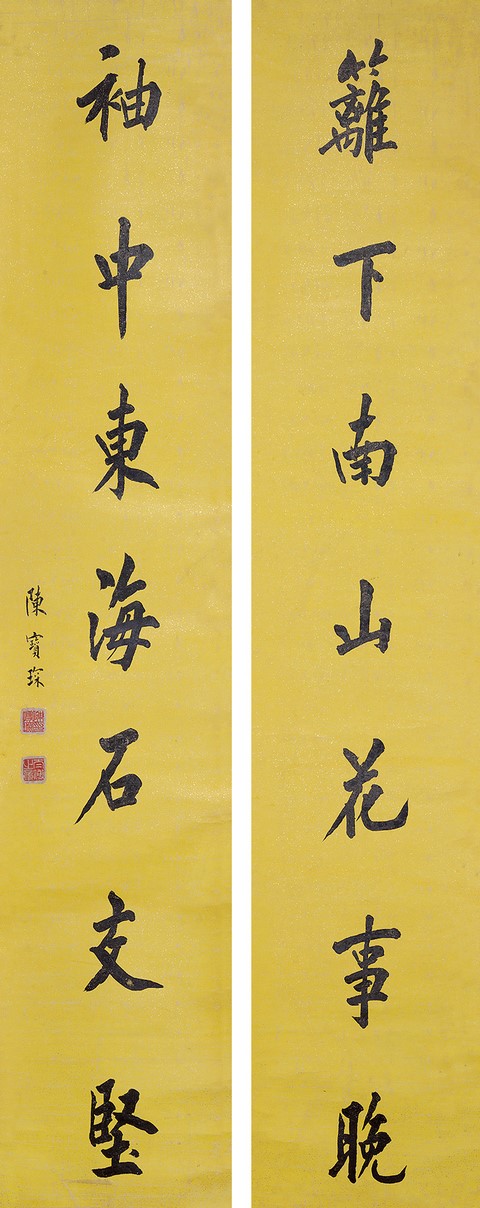 籬下南山花事晚
袖中東海石交堅
陳寶琛